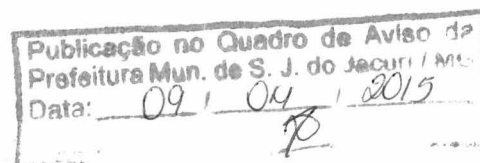 Publicação no Quadro de Aviso da
Prefeitura Mun. de S. J. do Jacuri / MG
Data: 09 / 04 / 2015